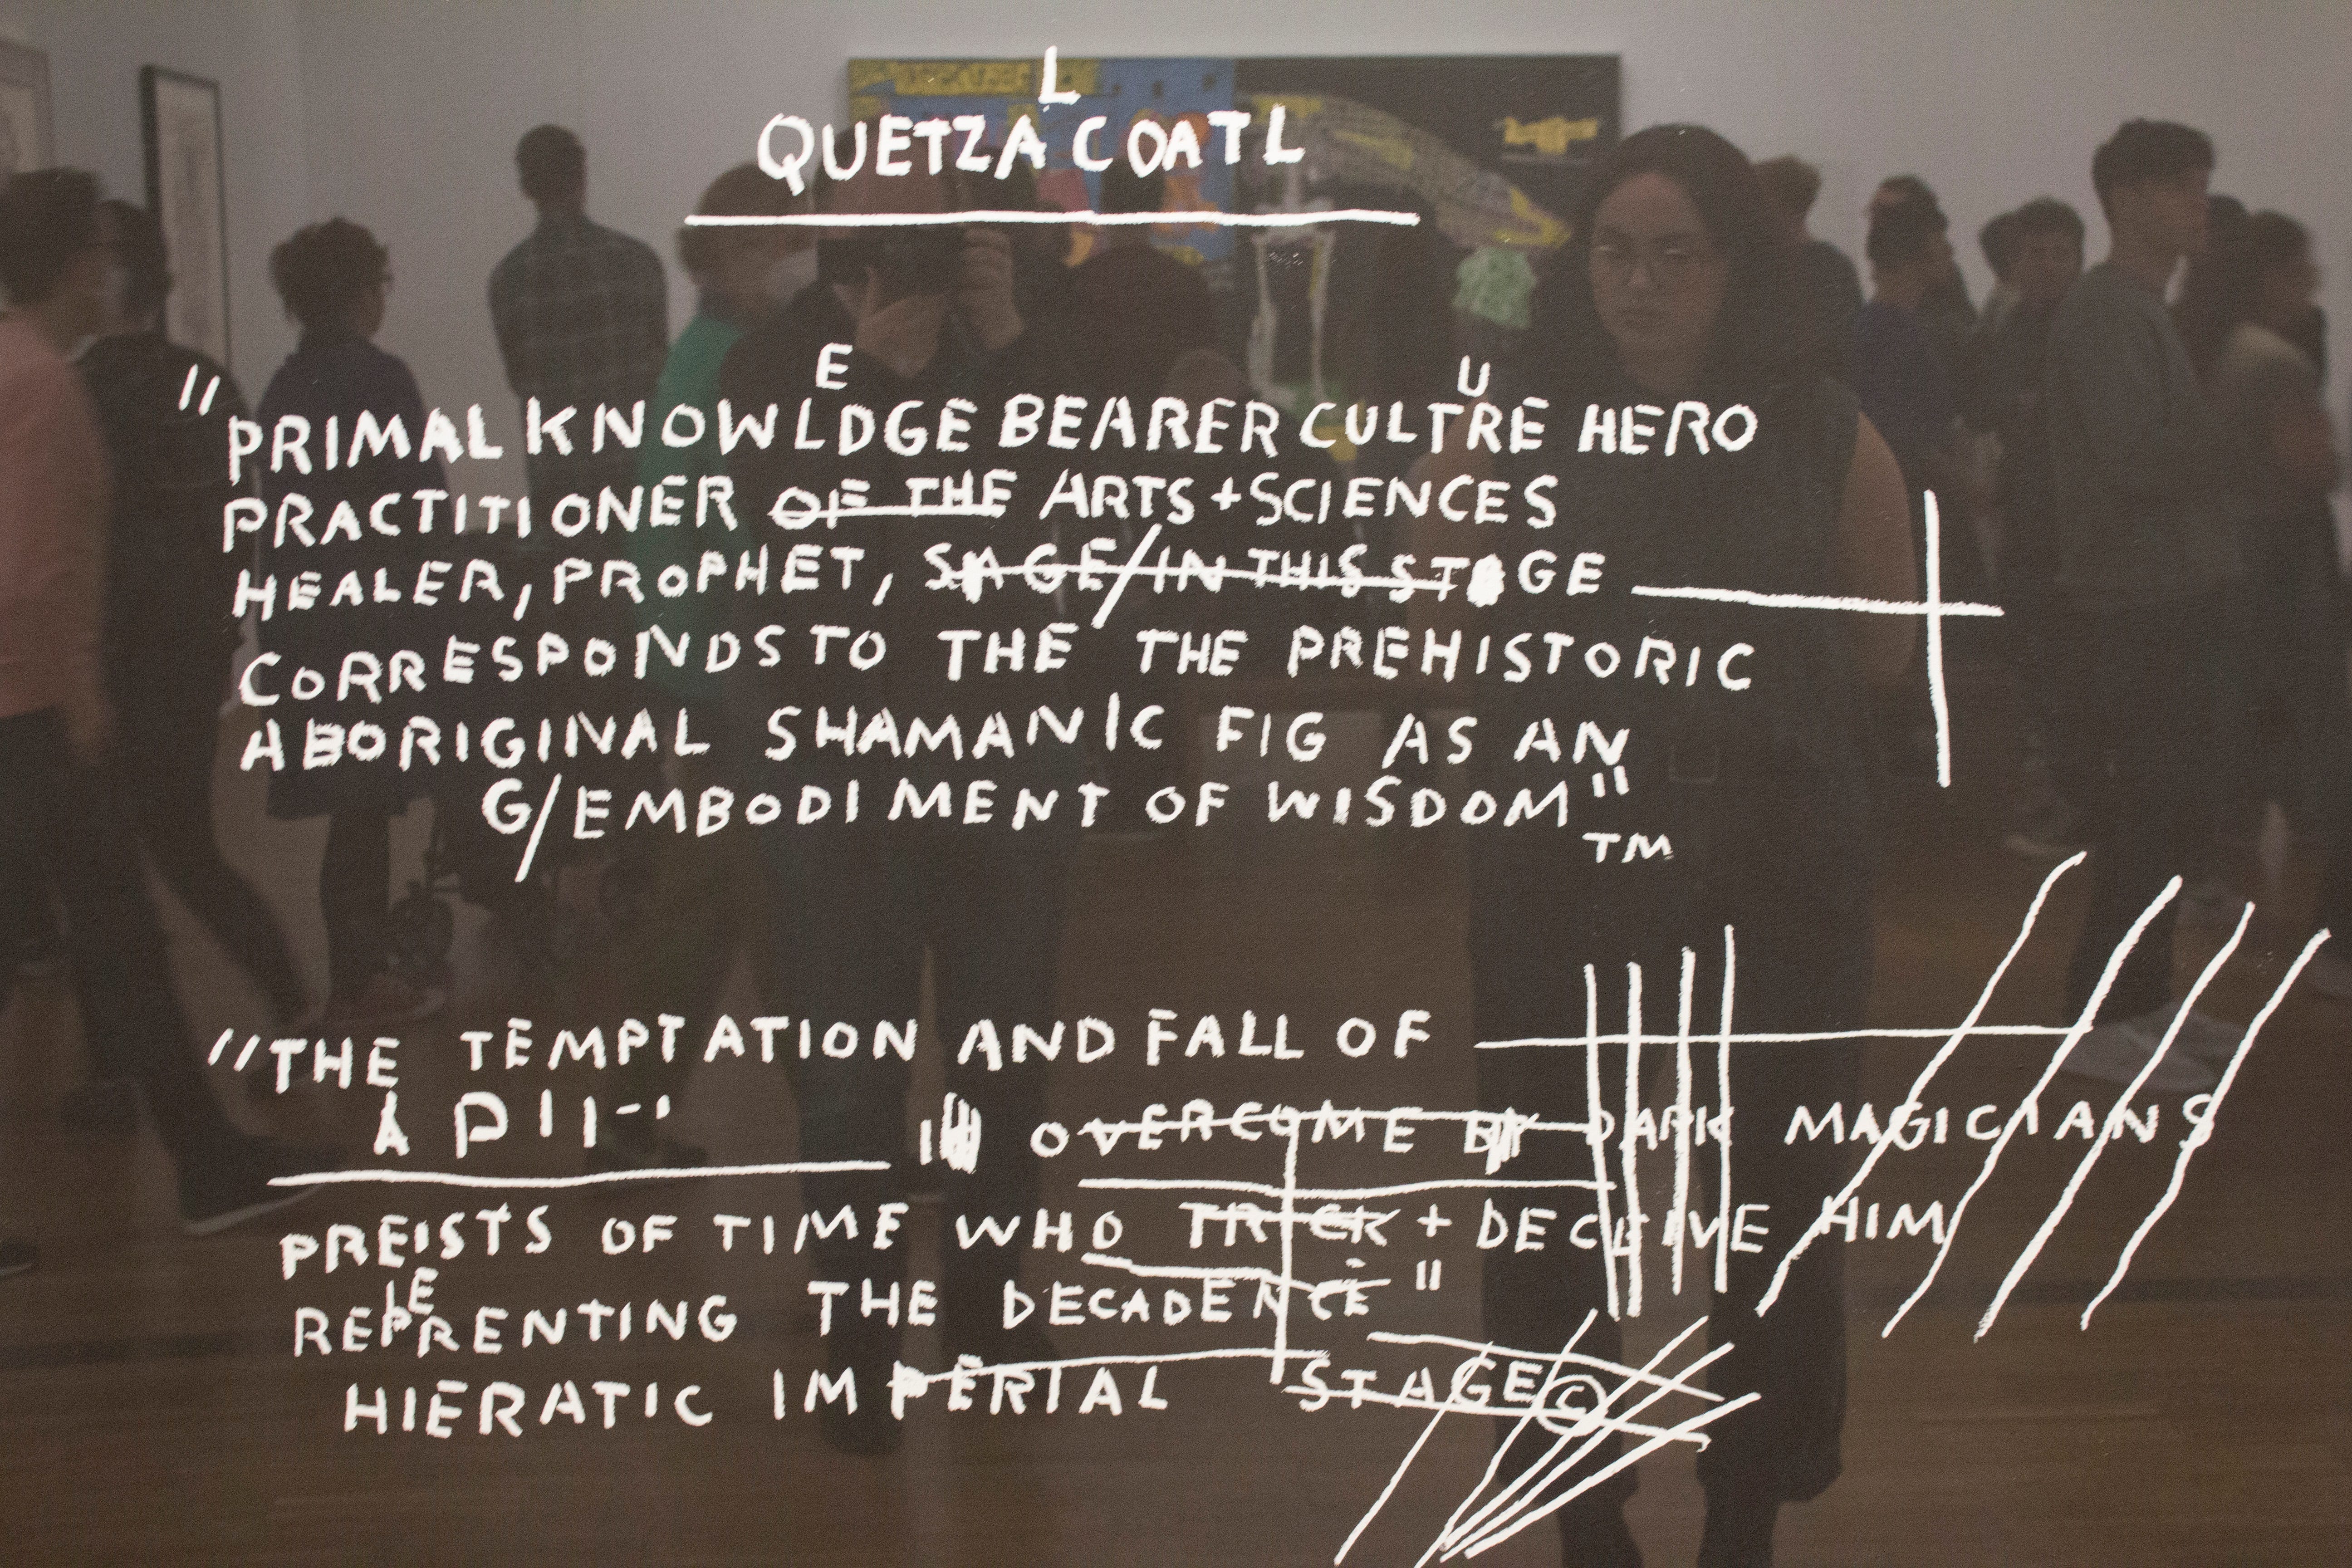 L
QUETZACOATL
E U
"PRIMAL KNOWLDGE BEARER CULTRE HERO
PRACTITIONER OF THE ARTS + SCIENCES
HEALER, PROPHET, SAGE/IN THIS STAGE
CORRESPONDS TO THE THE PREHISTORIC
ABORIGINAL SHAMANIC FIG AS AN
G/EMBODIMENT OF WISDOM"
TM
"THE TEMPTATION AND FALL OF
OVERCOME BY DARK MAGICIANS
PREISTS OF TIME WHO TRICK + DECEIVE HIM
IE
REPRENTING THE DECADENCE"
HIERATIC IMPERIAL STAGE©